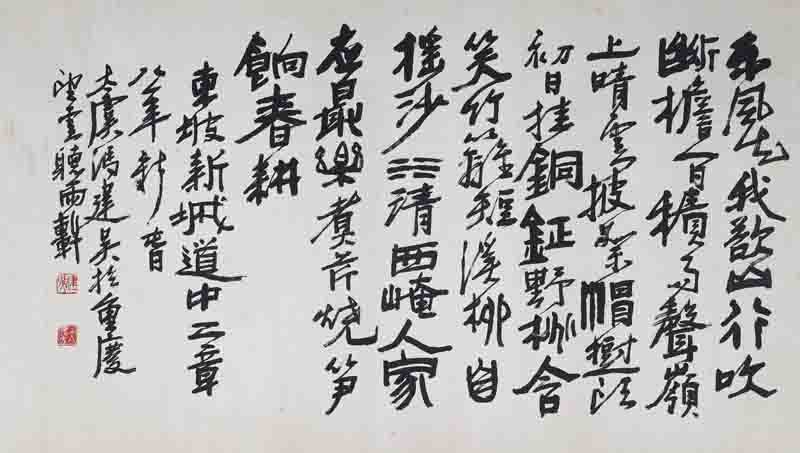 东風知我欲山行吹
断檐間積雨聲嶺
上晴雲披絮帽樹頭
初日挂銅鉦野桃含
笑竹籬短溪柳自
摇沙水清西崦人家
應最樂煮芹燒笋
餉春耕
東坡新城道中二章
年新
馮建吴於重慶
望雲聽雨軒